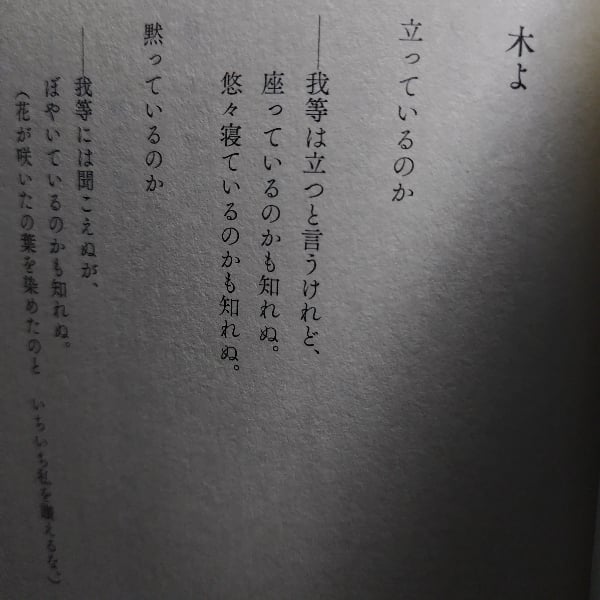 木よ
立っているのか
――我等は立つと言うけれど、
座っているのかも知れぬ。
悠々寝ているのかも知れぬ。
黙っているのか
――我等には聞こえぬが、
ぼやいているのかも知れぬ。
(花が咲いたの葉を染めたのと いちいち私を えるな)